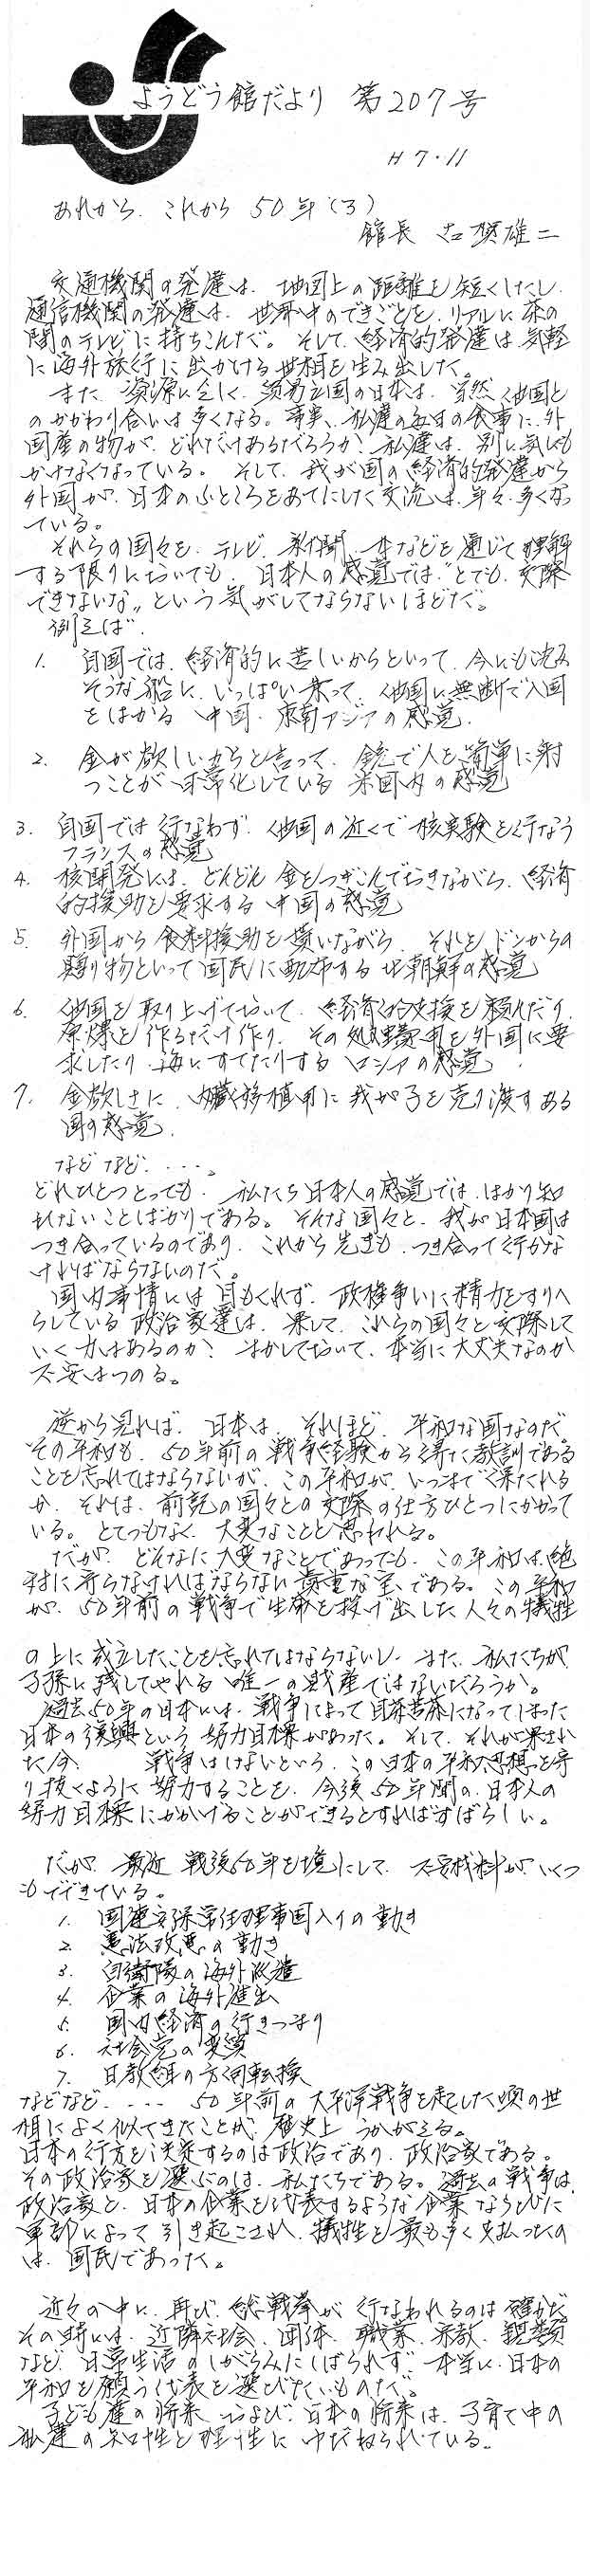 ようどう館だより 第207号
H7・11
あれから、これから 50年(3)
館長 古賀雄二
交通機関の発達は、地図上の距離を短くしたし、
通信機関の発達は、世界中のできごとを、リアルに茶の
間のテレビに持ちこんだ。そして、経済的発達は、気軽
に海外旅行に出かける世相を生み出した。
また、資源に乏しく、貿易立国の日本は、当然、他国と
のかかわり合いは多くなる。事実、私達の毎日の食事に、外
国産の物が、どれだけあるだろうか、私達は、別に気にも
かけなくなっている。そして、我が国の経済的発達から
外国が、日本のふところをあてにした交流は、年々、多くなっ
ている。
それらの国々を、テレビ、新聞、本などを通じて理解
する限りにおいても、日本人の感覚では、"とても、交際
できないな"という気がしてならないほどだ。
例えば、
1. 自国では、経済的に苦しいからといって、今にも沈み
そうな船に、いっぱい乗って、他国に無断で入国
をはかる 中国・東南アジアの感覚.
2. 金が欲しいからと言って、銃で人を簡単に射
つことが日常化している 米国内の感覚
3. 自国では行なわず、他国の近くで核実験を行なう
フランスの感覚
4. 核開発には、どんどん金をつぎこんでおきながら、経済
的援助を要求する 中国の感覚
5. 外国から食料援助を貰いながら、それを ドンからの
賜り物といって国民に配布する 北朝鮮の感覚
6. 他国を取り上げておいて、経済的支援を頼んだり、
原爆を作るだけ作り、その処理費用を外国に要
求したり、海にすてたりする ロシアの感覚.
7. 金欲しさに、内臓移植用に我が子を売り渡す ある
国の感覚.
などなど‥‥。
どれひとつとっても、私たち日本人の感覚では、はかり知
れないことばかりである。そんな国々と、我が日本国は
つき合っているのであり、これから先きも、つき合って行かな
ければならないのだ。
国内事情には目もくれず、政権争いに精力をすりへ
らしている政治家達は、果して、これらの国々と交際して
いく力はあるのか? まかしておいて、本当に大丈夫なのか
不安はつのる。
逆から見れば、日本は、それほど、平和な国なのだ。
その平和も、50年前の戦争経験から得た教訓である
ことを忘れてはならないが、この平和が、いつまで保たれる
か、それは、前記の国々との交際の仕方ひとつにかかって
いる。とてつもなく、大変なことと思われる。
だが、どんなに大変なことであっても、この平和は、絶
対に守らなければならない貴重な宝である。この平和
が、50年前の戦争で生命を投げ出した人々の犠牲
の上に成立したことを忘れてはならないし、また、私たちが、
子孫に残してやれる唯一の財産ではないだろうか。
過去50年の日本には、戦争によって目茶苦茶になってしまった
日本の復興という努力目標があった。そして、それが果され
た今、 戦争はしないという、この日本の平和思想を守
り抜くように努力することを、今後50年間の、日本人の
努力目標にかかげることができるとすればすばらしい。
だが、最近 戦後50年を境にして、不安材料が、いくつ
もでできている。
1. 国連安保常任理事国入りの動き
2. 憲法改悪の動き
3. 自衛隊の海外派遣
4. 企業の海外進出
5. 国内経済の行きづまり
6. 社会党の変質
7. 日教組の方向転換
などなど‥‥ 50年前の太平洋戦争を起した頃の世
相によく似てきたことが、歴史上 うかがえる。
日本の行方を決定するのは政治であり、政治家である。
その政治家を選ぶのは、私たちである。過去の戦争は、
政治家と、日本の企業を代表するような企業ならびに
軍部によって引き起こされ、犠牲を最も多く支払ったの
は、国民であった。
近々の中に、再び、総選挙が行なわれるのは確かだ。
その時には、近隣社会、団体、職業、宗教、親類
など、日常生活のしがらみにしばられず、本当に、日本の
平和を願う代表を選びたいものだ。
子ども達の将来および、日本の将来は、子育て中の
私達の知性と理性にゆだねられている。